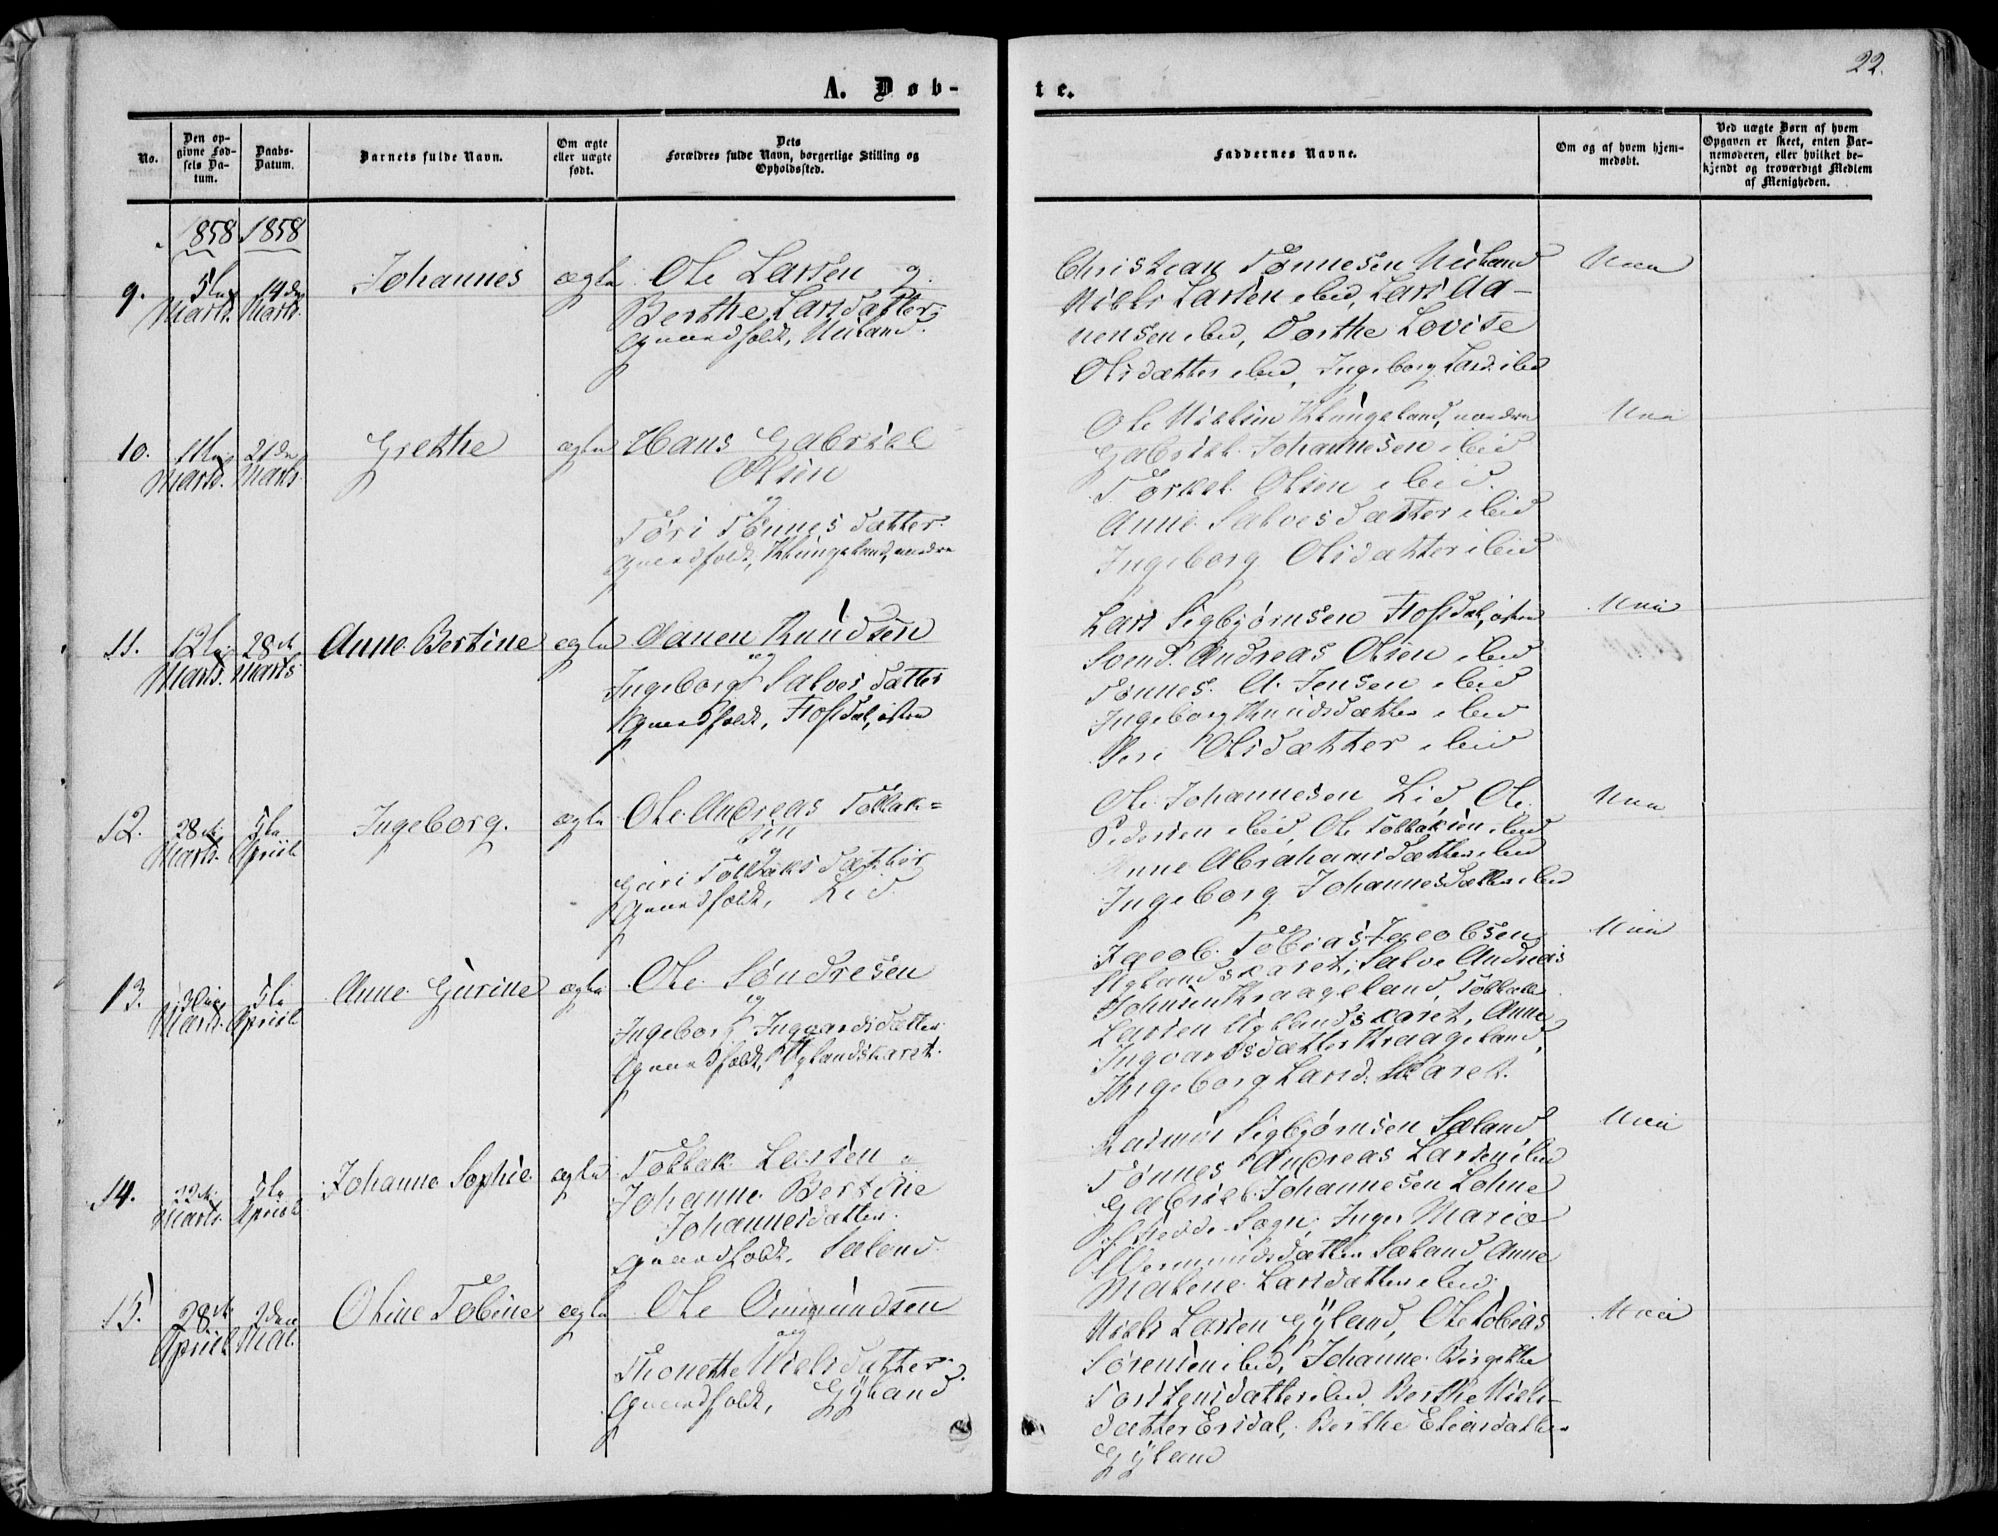 22.
A. Døb-
te.
No.
Den op-
givne Fød-
sels Da-
tum.
Daabs-
Datum.
Barnets fulde Navn.
Om ægte
eller uægte
født.
Dets
Forældres fulde Navn, borgerlige Stilling og
Opholdssted.
Faddernes Navne.
Om og af hvem hjem-
medøbt.
Ved uægte Børn af hvem
Opgaven er skeet, enten Bar-
nemoderen, eller hvilket be-
kjendt og troværdigt Medlem
af Menigheden.
1858 1858
9.
5te
Marts.
14de
Marts.
Johannes
ægte
Ole Larsen og
Berthe Larsdatter
Gaardfolk, Nuland.
Christian Tønnesen Nuland
Niels Larsen ibid, Lars Aa-
nensen ibid, Dorthe Lovise
Olsdatter ibid, Ingeborg Larsd. ibid
Nei
10.
11te
Marts.
21de
Marts.
Grethe
ægte
Hans Gabriel
Olsen
og
Tøri Tønnesdatter.
Gaardfolk, Klungeland, nedre
Ole Nielsen Klungeland, nedre
Gabriel Johannesen ibid
Torkel Olsen ibid.
Anne Salvesdatter ibid
Ingeborg Olsdatter ibid
Nei
11.
12te
Marts.
28de
Marts
Anne Bertine
ægte
Aanen Knudsen
og
Ingeborg Salvesdatter
Gaardfolk, Hofdal, østre
Lars Sigbjørnsen Hofdal, østre
Svend Andreas Olsen ibid
Tønnes A. Jensen ibid
Ingeborg Knudsdatter ibid
Siri Olsdatter ibid
Nei
12.
28de
Marts.
5te
Apriil
Ingeborg.
ægte
Ole Andreas Tollak=
sen
og
Guri Tollaksdatter
Gaardfolk, Lid
Ole Johannesen Lid, Ole
Pedersen ibid, Ole Tollaksen ibid
Anne Abrahamsdatter ibid
Ingeborg Johannesdatter ibid
Nei
13.
Marts.
5te
Apriil
Anne Gurine
ægte
Ole Søndresen
og
Ingeborg Ingvardsdatter
Gaardfolk, Nylandskaret.
Jacob Tobias Jacobsen
Nylandskaret, Salve Andreas
Johnsen Kraageland, Tollak
Larsen Nylandskaret, Anne
Ingvardsdatter Kraageland,
Ingeborg Larsd. Skaret.
Nei
14.
22de
Marts.
5te
Apriil
Johanne Sophie
ægte
Tollak Larsen og
Johanne Bertine
Johannesdatter
Gaardfolk, Sæland.
Rasmus Sigbjørnsen Sæland
Tønnes Andreas Larsen ibid
Gabriel Johannesen Lohne
Fjotland Sogn, Inger Marie
Sæland, Anne
Malene Larsdatter ibid.
Nei
15.
28de
Apriil
2den
Mai.
Oline Tobine
ægte
Ole Ommundsen
og
Thonette Nielsdatter
Gaardfolk, Gyland
Niels Larsen Gyland, Ole Tobias
Sørensen ibid, Johanne Birgitte
Torstensdatter ibid, Berthe Niels-
datter Ersdal, Berthe Eliasdatter
Gyland
Nei